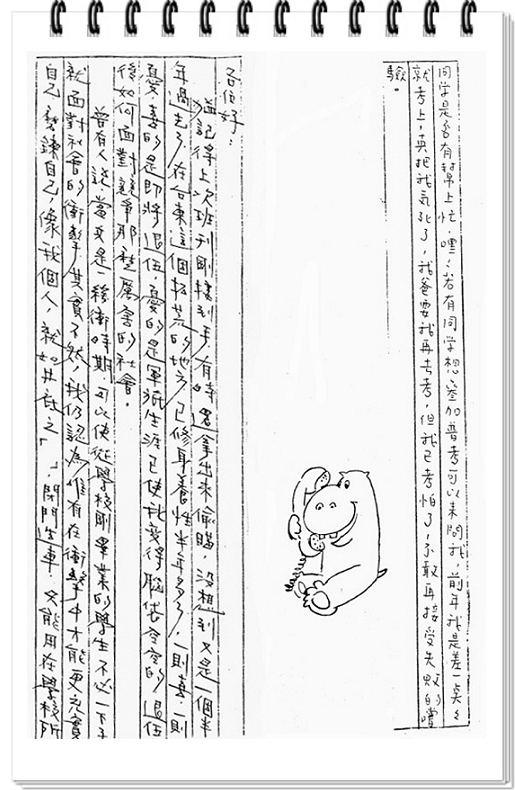 同学是否有幫上忙，嘿！若有同学想參加普考可以来問我，前年我是差一點点
就考上，真把我気死了，我爸要我再去考，但我已考怕了，不敢再接受失敗的嚐
驗。
各位好：
猶記得上次班刊剛接到手，有時還拿出來偷瞄，沒想到又是一個半
年過去了，在台東這個拓荒的地方，已修身養性半年多了，一則喜，一則
憂，喜的是即將退伍，憂的是軍旅生涯已使我変得腦袋空空的，退伍
後如何面對競爭那麼厲害的社會。
曾有人說當兵是一種緩衝時期，可以使從學校剛畢業的學生不必一下子
就面對社會的衝擊，其實不然，我仍認為唯有在衝擊中才能更充實
自己，磨鍊自己，像我個人，就如井底之「　」，閉門造車，只能用在學校所